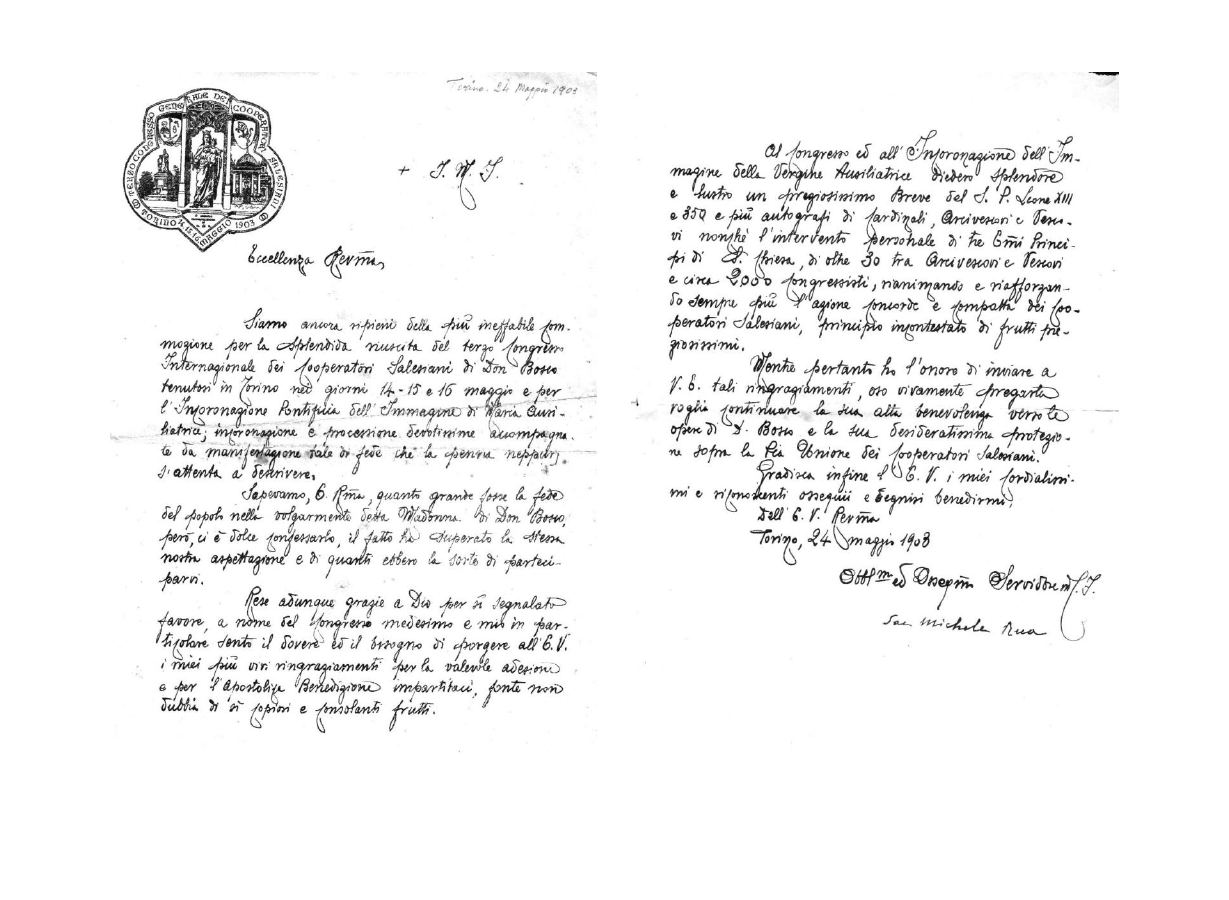 Torino. 24 Maggio 1903
TERZO CONGRESSO GENERALE DEI COOPERATORI SALESIANI
TORINO 14. 15. 16 MAGGIO 1903
+ J. M. J.
Eccellenza Reṽma,
Siamo ancora ripieni della più ineffabile com-
mozione per la splendida riuscita del terzo Congresso
Internazionale dei Cooperatori Salesiani di Don Bosco
tenutosi in Torino nei giorni 14-15 e 16 maggio e per
l'Incoronazione Pontificia dell'Immagine di Maria Ausi-
liatrice, incoronazione e processione devotissime accompagna-
te da manifestazione tale di fede che la penna neppur
s'attenta a descrivere.
Sapevamo, E. Rm̃a, quanto grande fosse la fede
del popolo nella volgarmente detta Madonna di Don Bosco,
però, ci è dolce confessarlo, il fatto ha superato la stessa
nostra aspettazione e di quanti ebbero la sorte di parteci-
parvi.
Rese adunque grazie a Dio per sì segnalato
favore, a nome del Congresso medesimo e mio in par-
ticolare sento il dovere ed il bisogno di porgere all'E. V.
i miei più vivi ringraziamenti per la valevole adesione
e per l'Apostolica Benedizione impartitaci, fonte non
dubbia di sì copiosi e consolanti frutti.
Al Congresso ed all'Incoronazione dell'Im-
magine della Vergine Ausiliatrice diedero splendore
e lustro un preziosissimo Breve del S. P. Leone XIII
e 350 e più autografi di Cardinali, Arcivescovi e Vesco-
vi nonchè l'intervento personale di tre Em̃i Princi-
pi di S. Chiesa, di oltre 30 tra Arcivescovi e Vescovi
e circa 2000 congressisti, rianimando e riafforzan-
do sempre più l'azione concorde e compatta dei Coo-
peratori Salesiani, principio incontestato di frutti pre-
ziosissimi.
Mentre pertanto ho l'onore di inviare a
V. E. tali ringraziamenti, oso vivamente pregarla
voglia continuare la sua alta benevolenza verso le
opere di D. Bosco e la sua desideratissima protezio-
ne sopra la Pia Unione dei Cooperatori Salesiani.
Gradisca infine l'E. V. i miei cordialissi-
mi e riconoscenti ossequii e degnisi benedirmi,
Dell'E. V. Reṽma
Torino, 24 maggio 1903
Obblmo ed Osseqm̃o Servidore in C. J.
Sac. Michele Rua